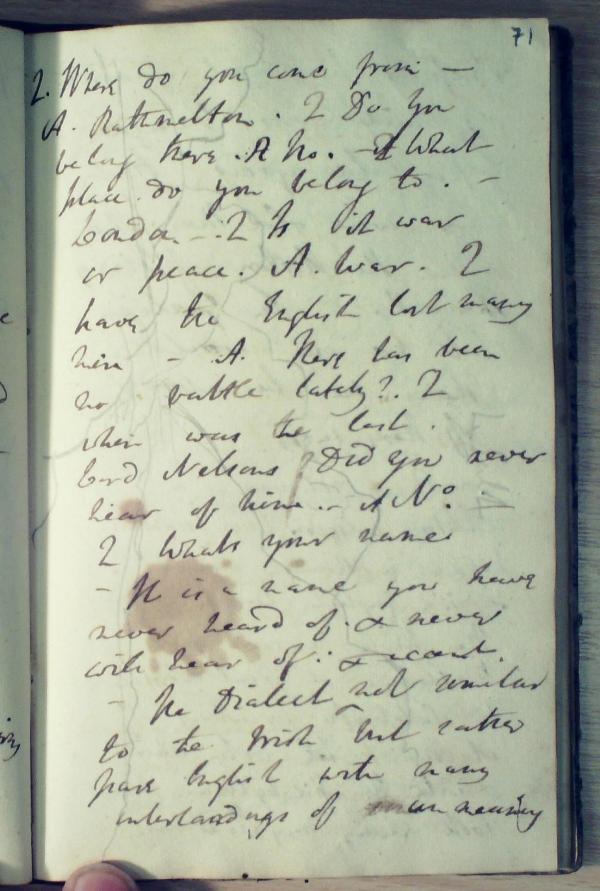 71
2. Where do you come from —
A. Rathmelton. 2 Do you
belong there. A No. — 2 What
place do you belong to. —
London — 2 Is it war
or peace. A. War. 2
have the English lost many
men — A. There has been
no battle lately?. 2
when was the last.
Lord Nelsons? Did you never
hear of him. — A No. —
2 Whats your name
— It is a name you have
never heard of. & never
will hear of:
— The Dialect not similar
to the Irish but rather
pure English with many
of unmeaning